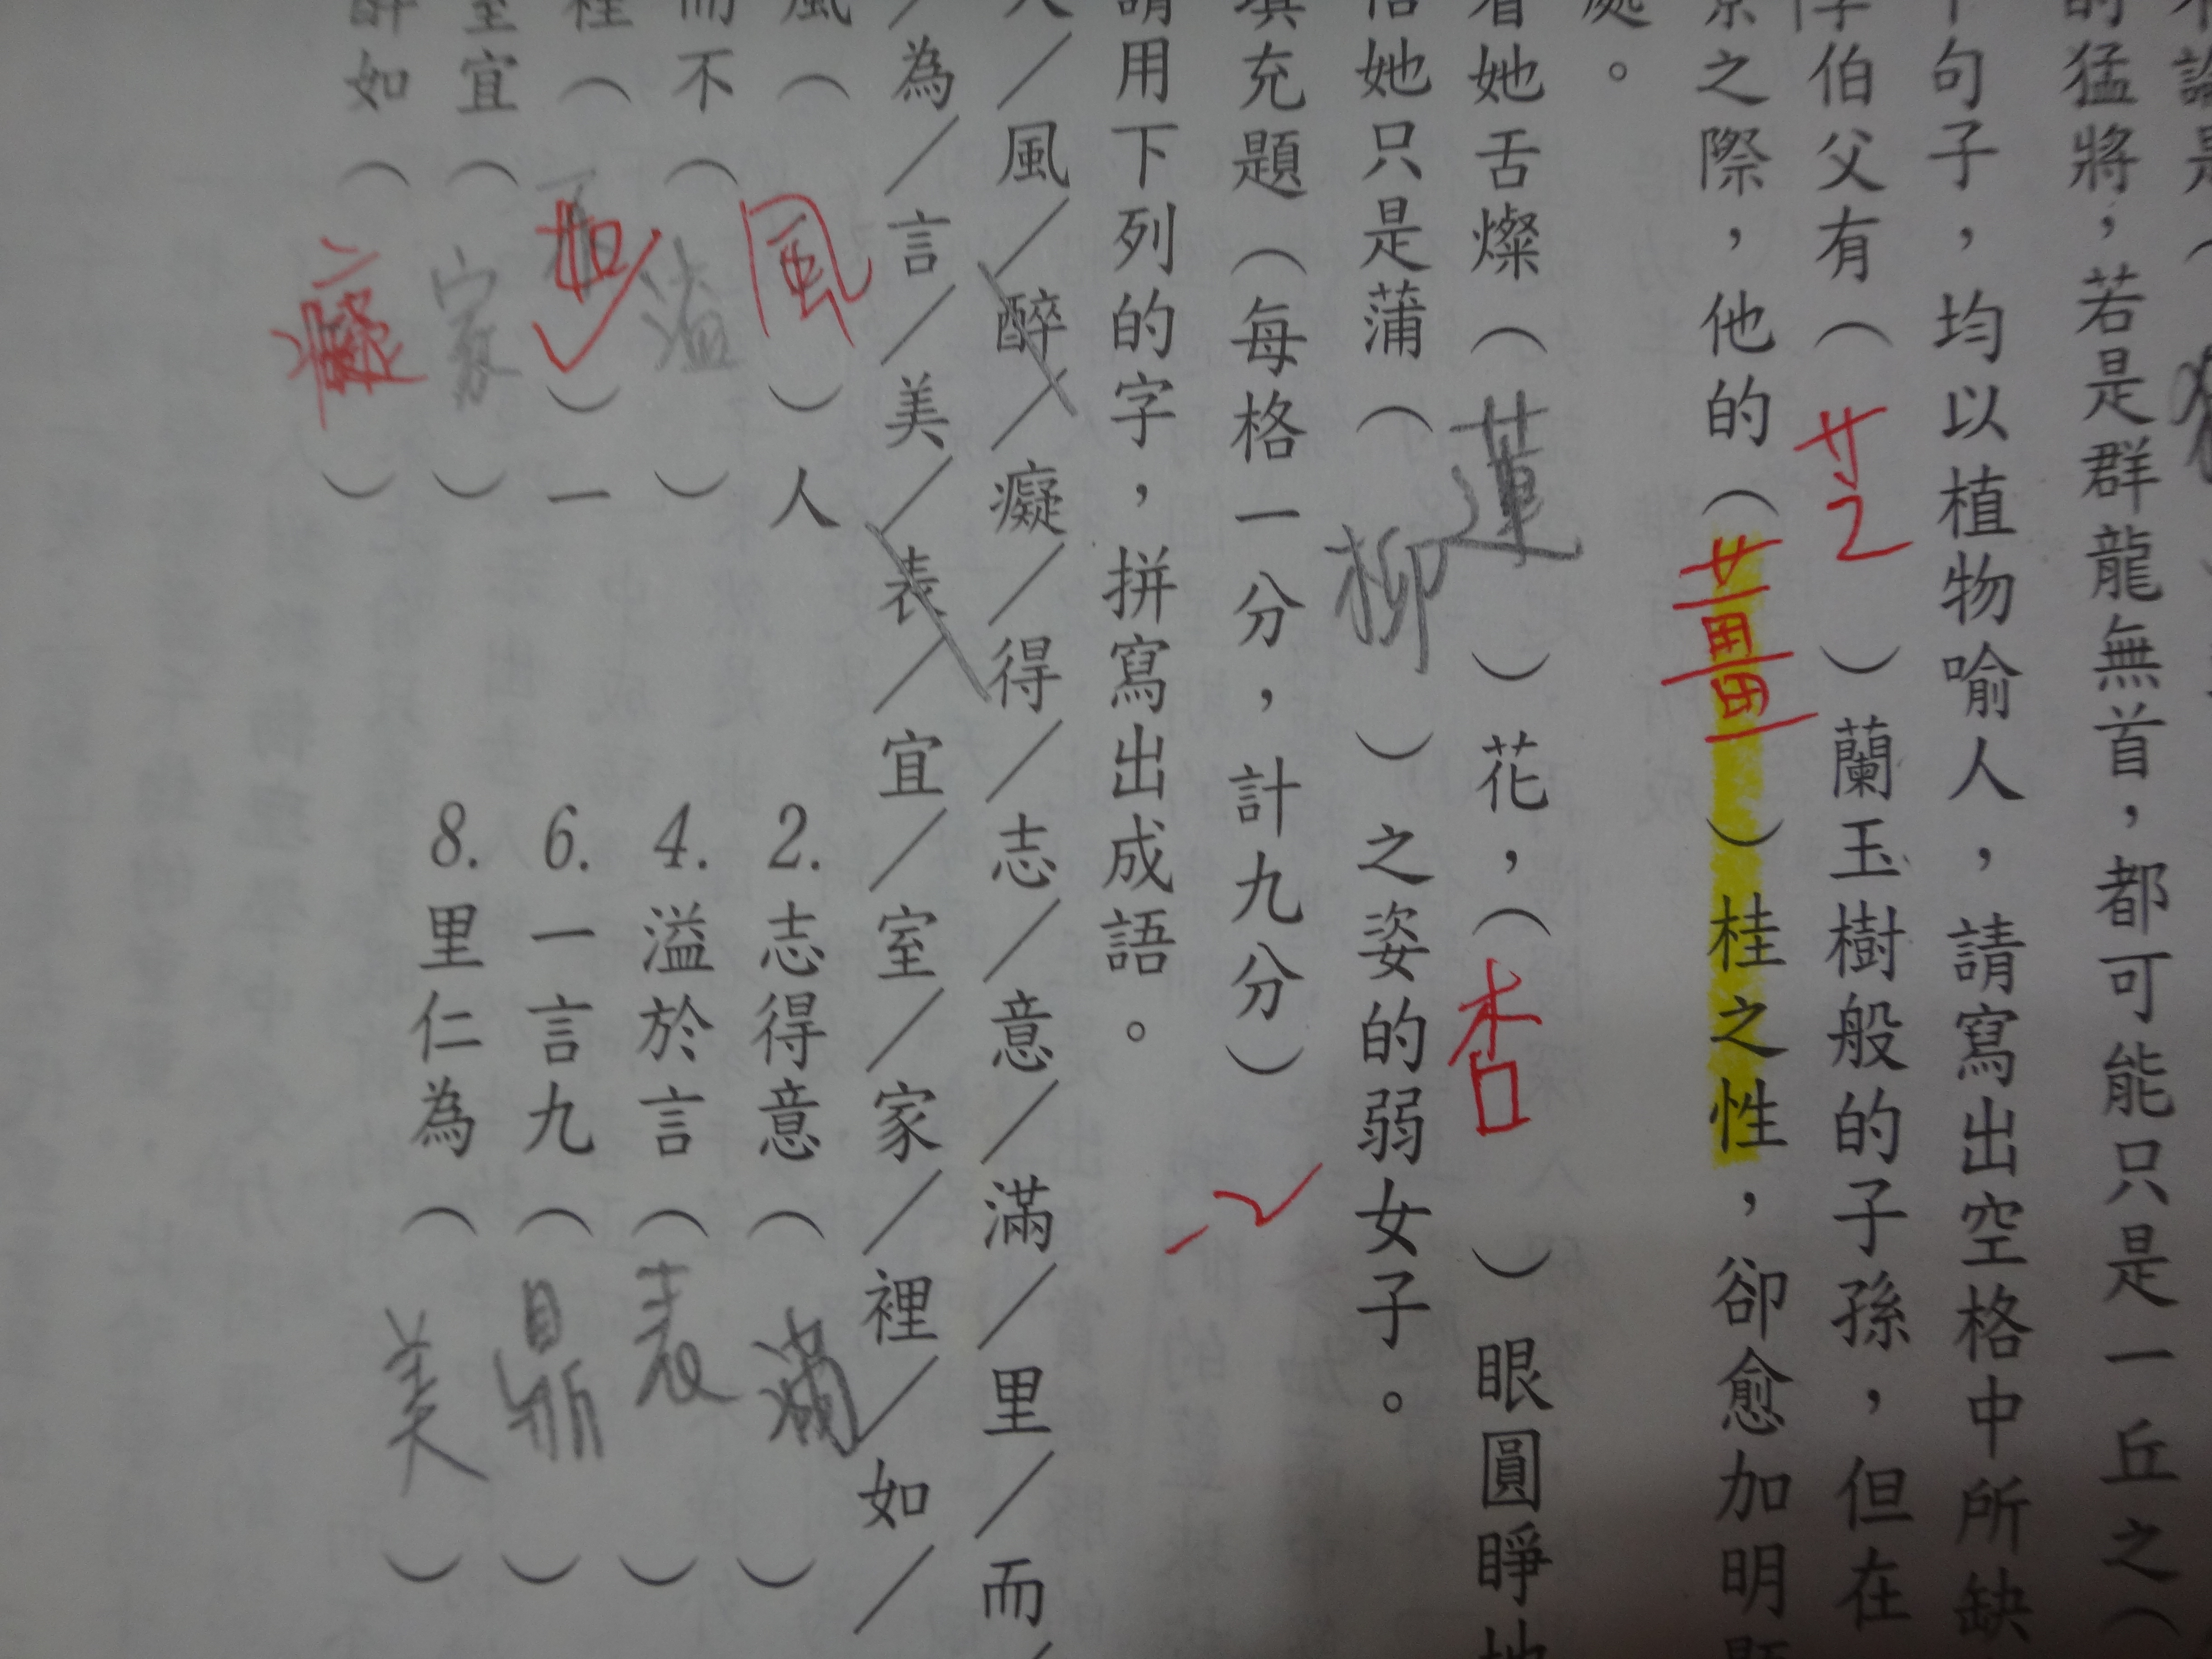 不論是(
的猛將，若是群龍無首，都可能只是一丘之(
下句子，均以植物喻人，請寫出空格中所缺
伯父有(芝)蘭玉樹般的子孫，但在
之際，他的(薑)桂之性，卻愈加明顯
處。
看她舌燦(蓮)花，(杏)眼圓睜地
她只是蒲(柳)之姿的弱女子。
填充題(每格一分，計九分)
請用下列的字，拼寫出成語。
人/風/醉/癡/得/志/意/滿/里/而/
/為/言/美/表/宜/室/家/裡/如/
風(風)人 2.志得意(滿)
而不(溢) 4.溢於言(表)
裡(如)一 6.一言九(鼎)
室宜(家) 8.里仁為(美)
醉如(癡)